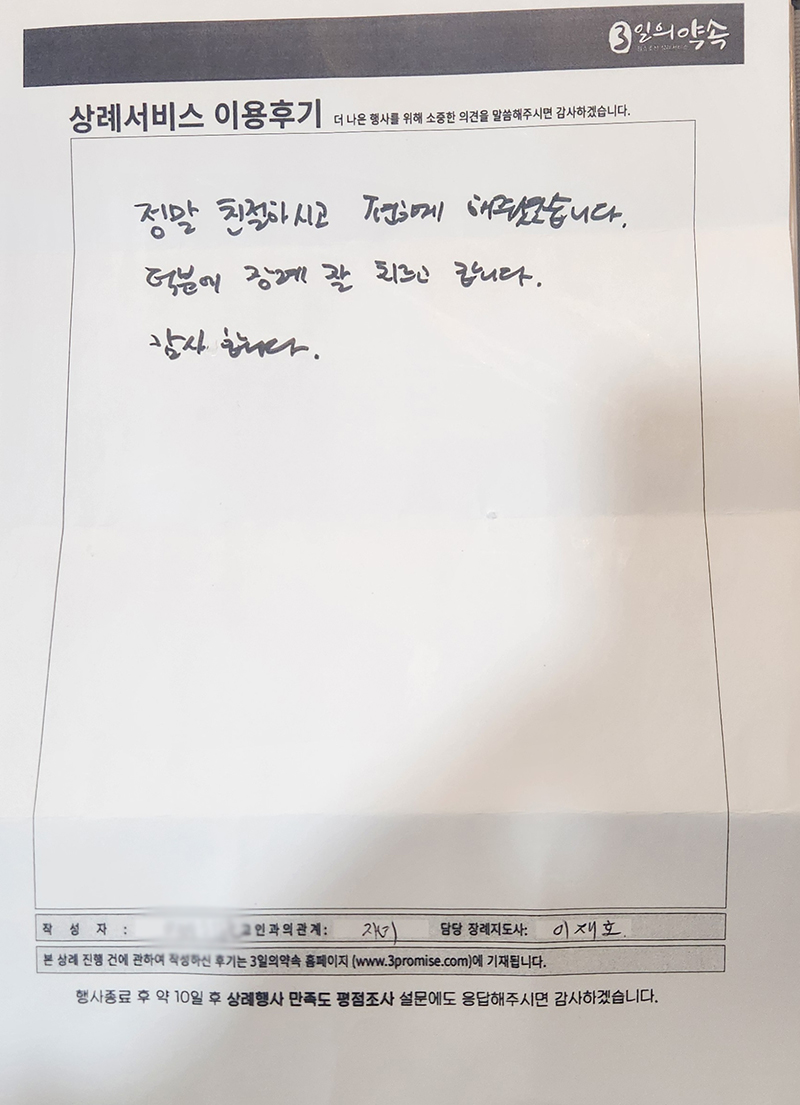 3일의약속
상례서비스 이용후기 더 나은 행사를 위해 소중한 의견을 말씀해주시면 감사하겠습니다.
정말 친절하시고 편하게 해주셨습니다.
덕분에 장례 잘 치르고 갑니다.
감사합니다.
작 성 자 : 고인과의관계: 자녀 담당 장례지도사: 이재호.
본 상례 진행 건에 관하여 작성하신 후기는 3일의약속 홈페이지 (www.3promise.com)에 기재됩니다.
행사종료 후 약 10일 후 상례행사 만족도 평점조사 설문에도 응답해주시면 감사하겠습니다.